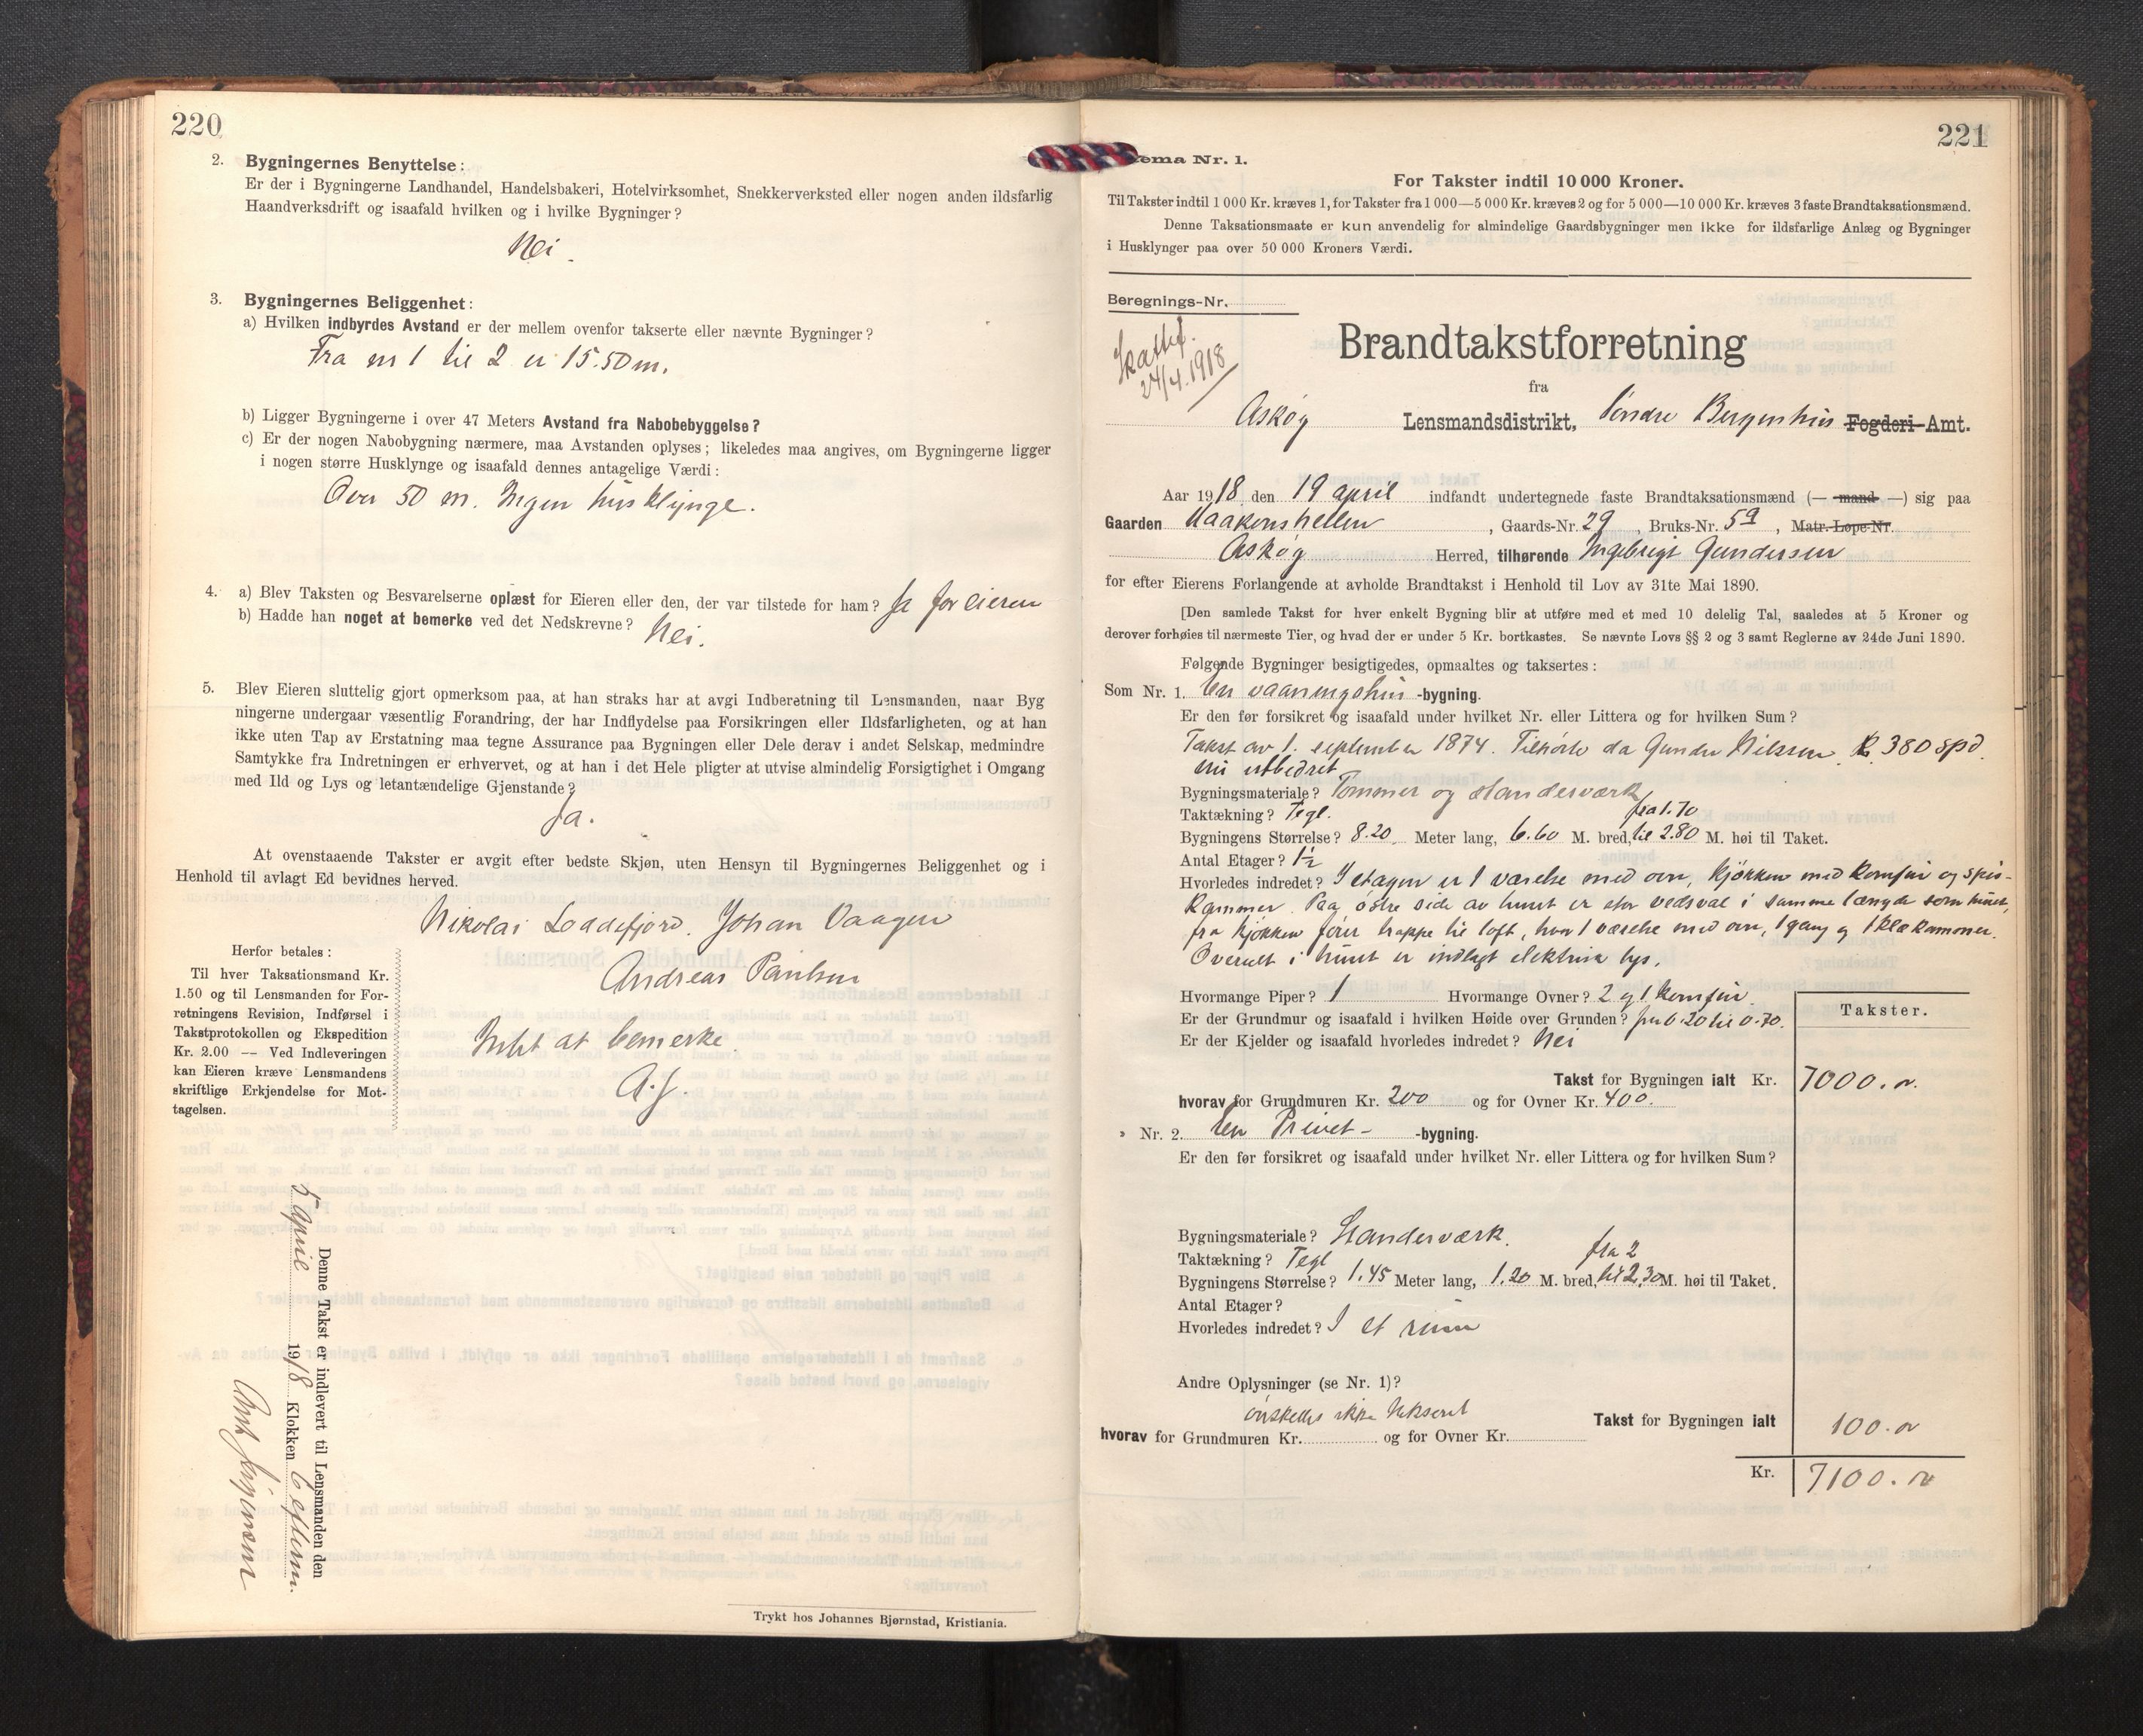 220
2. Bygningernes Benyttelse:
Er der i Bygningerne Landhandel, Handelsbakeri, Hotelvirksomhet, Snekkerverksted eller nogen anden ildsfarlig
Haandverksdrift og isaafald hvilken og i hvilke Bygninger?
Nei.
3. Bygningernes Beliggenhet:
a) Hvilken indbyrdes Avstand er der mellem ovenfor takserte eller nævnte Bygninger?
Fra nr 1 til 2 er 15.50 m.
b) Ligger Bygningerne i over 47 Meters Avstand fra Nabobebyggelse?
c) Er der nogen Nabobygning nærmere, maa Avstanden oplyses; likeledes maa angives, om Bygningerne ligger
i nogen større Husklynge og isaafald dennes antagelige Værdi:
Over 50 m. Ingen husklynge.
4. a) Blev Taksten og Besvarelserne oplæst for Eieren eller den, der var tilstede for ham? Ja for eieren
b) Hadde han noget at bemerke ved det Nedskrevne? Nei.
5. Blev Eieren sluttelig gjort opmerksom paa, at han straks har at avgi Indberetning til Lensmanden, naar Byg
ningerne undergaar væsentlig Forandring, der har Indflydelse paa Forsikringen eller Ildsfarligheten, og at han
ikke uten Tap av Erstatning maa tegne Assurance paa Bygningen eller Dele derav i andet Selskap, medmindre
Samtykke fra Indretningen er erhvervet, og at han i det Hele pligter at utvise almindelig Forsigtighet i Omgang
med Ild og Lys og letantændelige Gjenstande?
Ja.
At ovenstaaende Takster er avgit efter bedste Skjøn, uten Hensyn til Bygningernes Beliggenhet og i
Henhold til avlagt Ed bevidnes herved.
Nikolai Loddefjord. Johan Vaagen
Andreas Paulsen
Herfor betales:
Til hver Taksationsmand Kr.
1.50 og til Lensmanden for For-
retningens Revision, Indførsel i
Takstprotokollen og Ekspedition
Kr. 2.00 — Ved Indleveringen
kan Eieren kræve Lensmandens
skriftlige Erkjendelse for Mot-
tagelsen.
Intet at bemerke.
A.J.
Denne Takst er indlevert til Lensmanden den
5 April 1918 Klokken 6 efterm.
Trykt hos Johannes Bjørnstad, Kristiania.
221
ema Nr. 1.
For Takster indtil 10 000 Kroner.
Til Takster indtil 1 000 Kr. kræves 1, for Takster fra 1 000—5 000 Kr. kræves 2 og for 5 000—10 000 Kr. kræves 3 faste Brandtaksationsmænd.
Denne Taksationsmaate er kun anvendelig for almindelige Gaardsbygninger men ikke for ildsfarlige Anlæg og Bygninger
i Husklynger paa over 50 000 Kroners Værdi.
Beregnings-Nr.
24/4.1918
Brandtakstforretning
fra
Askøy Lensmandsdistrikt, Søndre Bergenhus Fogderi-Amt.
Aar 1918 den 19 april indfandt undertegnede faste Brandtaksationsmænd (— mand —) sig paa
Gaarden Haakonshellen, Gaards-Nr. 29, Bruks-Nr. 59, Matr.-Løpe-Nr.
Askøy Herred, tilhørende Ingebrigt Gundersen
for efter Eierens Forlangende at avholde Brandtakst i Henhold til Lov av 31te Mai 1890.
[Den samlede Takst for hver enkelt Bygning blir at utføre med et med 10 delelig Tal, saaledes at 5 Kroner og
derover forhøies til nærmeste Tier, og hvad der er under 5 Kr. bortkastes. Se nævnte Lovs §§ 2 og 3 samt Reglerne av 24de Juni 1890.
Følgende Bygninger besigtigedes, opmaaltes og taksertes:
Som Nr. 1. En vaaningshus -bygning.
Er den før forsikret og isaafald under hvilket Nr. eller Littera og for hvilken Sum?
Takst av 1. september 1874. Tilhørte da Gunder Nilssen. 380 spd.
nu utbedret
Bygningsmateriale? Tømmer og standerværk
Taktækning? Tegl. fra 1.70
Bygningens Størrelse? 8.20 Meter lang, 6.60 M. bred, til 2.80 M. høi til Taket.
Antal Etager? 1½
Hvorledes indredet? I etagen er 1 værelse med ovn, kjøkken med komfur og spis-
kammer. Paa østre side av huset er stor vedsval i samme længde som huset,
fra kjøkken fører trappe til loft, hvor 1 værelse med ovn, 1 gang og 1 klækammer.
Overalt i huset er indlagt elektrisk lys.
Hvormange Piper? 1 Hvormange Ovner? 2 og 1 komfur.
Er der Grundmur og isaafald i hvilken Høide over Grunden? fra 0.20 til 0.70.
Er der Kjelder og isaafald hvorledes indredet? Nei
Takster.
Takst for Bygningen ialt Kr. 7000.
hvorav for Grundmuren Kr. 200 og for Ovner Kr. 400.
» Nr. 2. En Privet- -bygning.
Er den før forsikret og isaafald under hvilket Nr. eller Littera og for hvilken Sum?
Bygningsmateriale? Standerværk.
Taktækning? Tegl fra 2
Bygningens Størrelse? 1.45 Meter lang, 1.20 M. bred, til 2,30 M. høi til Taket.
Antal Etager?
Hvorledes indredet? I et rum
Andre Oplysninger (se Nr. 1)?
ønskedes ikke takseret
Takst for Bygningen ialt 100.
hvorav for Grundmuren Kr. og for Ovner Kr.
Kr. 7100.